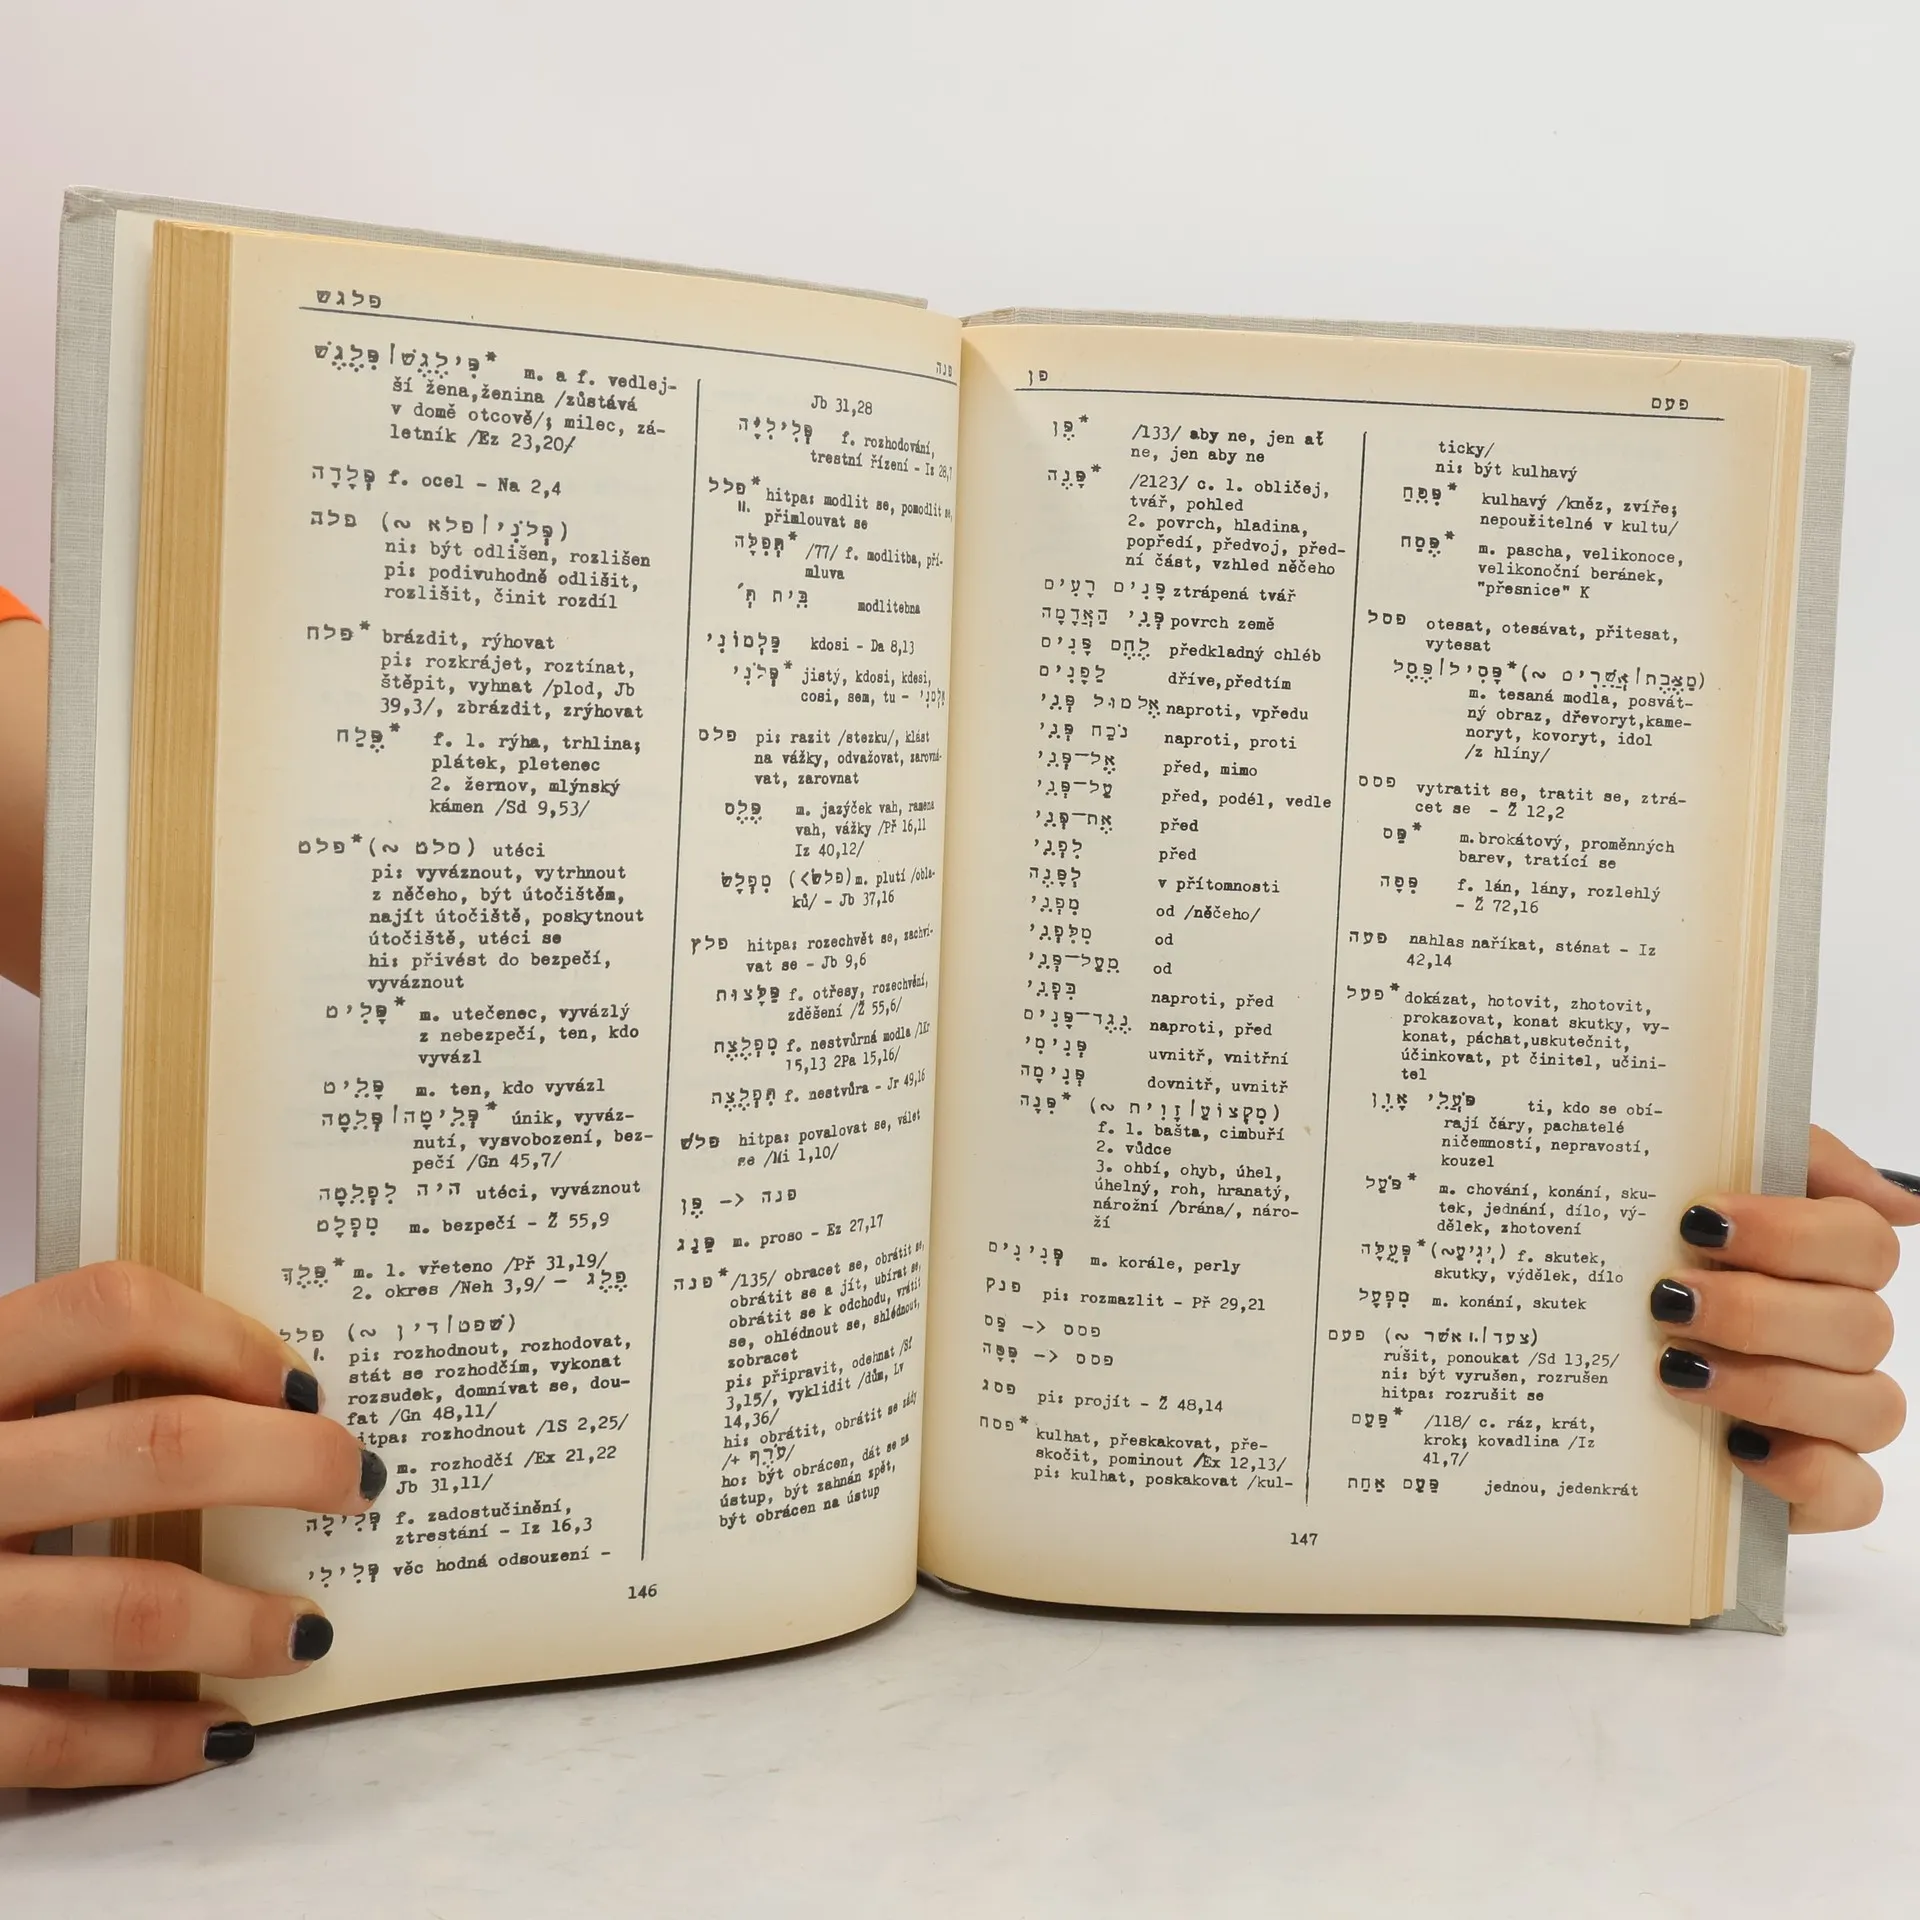 פלגש
פִּלֶגֶשׁ|פִּילֶגֶשׁ* m. a f. vedlej-
ší žena,ženina /zůstává
v domě otcově/; milec, zá-
letník /Ez 23,20/
פְּלָדָה f. ocel - Na 2,4
פלה (~ פלא|פְּלֹנִי)
ni: být odlišen, rozlišen
pi: podivuhodně odlišit,
rozlišit, činit rozdíl
פלח* brázdit, rýhovat
pi: rozkrájet, roztínat,
štěpit, vyhnat /plod, Jb
39,3/, zbrázdit, zrýhovat
פֶּלַח* f. 1. rýha, trhlina;
plátek, pletenec
2. žernov, mlýnský
kámen /Sd 9,53/
פלט* (~ מלט) utéci
pi: vyváznout, vytrhnout
z něčeho, být útočištěm,
najít útočiště, poskytnout
útočiště, utéci se
hi: přivést do bezpečí,
vyváznout
פָּלִיט* m. utečenec, vyvázlý
z nebezpečí, ten, kdo
vyvázl
פָּלֵיט m. ten, kdo vyvázl
פְּלֵטָה|פְּלֵיטָה* únik, vyváz-
nutí, vysvobození, bez-
pečí /Gn 45,7/
היה לִפְלֵטָה utéci, vyváznout
מִפְלָט m. bezpečí - Ž 55,9
פֶּלֶךְ* m. 1. vřeteno /Př 31,19/
2. okres /Neh 3,9/ - פֶּלֶג
פלל (~ דין|שׁפט)
I. pi: rozhodnout, rozhodovat,
stát se rozhodčím, vykonat
rozsudek, domnívat se, dou-
fat /Gn 48,11/
itpa: rozhodnout /1S 2,25/
m. rozhodčí /Ex 21,22
Jb 31,11/
פְּלִילָה f. zadostučinění,
ztrestání - Iz 16,3
פְּלִילִי věc hodná odsouzení -
146
פנה
Jb 31,28
פְּלִילִיָּה f. rozhodování,
trestní řízení - Iz 28,7
פלל* hitpa: modlit se, pomodlit se,
II. přimlouvat se
תְּפִלָּה* /77/ f. modlitba, pří-
mluva
בֵּית תְּ׳ modlitebna
פַּלְמוֹנִי kdosi - Da 8,13
פְּלֹנִי* jistý, kdosi, kdesi,
cosi, sem, tu -
פלס pi: razit /stezku/, klást
na vážky, odvažovat, zarovná-
vat, zarovnat
פֶּלֶס m. jazýček vah, ramena
vah, vážky /Př 16,11
Iz 40,12/
מִפְלָשׂ (<פלשׂ) m. plutí /obla-
ků/ - Jb 37,16
פלץ hitpa: rozechvět se, zachví-
vat se - Jb 9,6
פַּלָּצוּת f. otřesy, rozechvění,
zděšení /Ž 55,6/
מִפְלֶצֶת f. nestvůrná modla /1Kr
15,13 2Pa 15,16/
תִּפְלֶצֶת f. nestvůra - Jr 49,16
פלשׁ hitpa: povalovat se, válet
se /Mi 1,10/
פֶּן <- פנה
פַּנַּג m. proso - Ez 27,17
פנה* /135/ obracet se, obrátit se,
obrátit se a jít, ubírat se,
obrátit se k odchodu, vrátit
se, ohlédnout se, shlédnout,
zobracet
pi: připravit, odehnat /Sf
3,15/, vyklidit /dům, Lv
14,36/
hi: obrátit, obrátit se zády
/+ עֹרֶף/
ho: být obrácen, dát se na
ústup, být zahnán zpět,
být obrácen na ústup
פן
פֶּן* /133/ aby ne, jen ať
ne, jen aby ne
פָּנֶה* /2123/ c. 1. obličej,
tvář, pohled
2. povrch, hladina,
popředí, předvoj, před-
ní část, vzhled něčeho
פָּנִים רָעִים ztrápená tvář
פְּנֵי הָאֲדָמָה povrch země
לֶחֶם פָּנִים předkladný chléb
לְפָנִים dříve,předtím
אֶל מוּל פְּנֵי naproti, vpředu
נֹכַח פְּנֵי naproti, proti
אֶל־פְּנֵי před, mimo
עַל־פְּנֵי před, podél, vedle
אֶת־פְּנֵי před
לִפְנֵי před
לְפָנֶה v přítomnosti
מִפְּנֵי od /něčeho/
מִלִּפְנֵי od
מֵעַל־פְּנֵי od
בִּפְנֵי naproti, před
נֶגֶד־פָּנִים naproti, před
פְּנִימִי uvnitř, vnitřní
פְּנִימָה dovnitř, uvnitř
פִּנָּה* (~ זָוִית|מִקְצוֹעַ)
f. 1. bašta, cimbuří
2. vůdce
3. ohbí, ohyb, úhel,
úhelný, roh, hranatý,
nárožní /brána/, náro-
ží
פְּנִינִים m. korále, perly
פנק pi: rozmazlit - Př 29,21
פַּס <- פסס
פִּסָּה <- פסס
פסג pi: projít - Ž 48,14
פסח* kulhat, přeskakovat, pře-
skočit, pominout /Ex 12,13/
pi: kulhat, poskakovat /kul-
147
פעם
ticky/
ni: být kulhavý
פִּסֵּחַ* kulhavý /kněz, zvíře;
nepoužitelné v kultu/
פֶּסַח* m. pascha, velikonoce,
velikonoční beránek,
"přesnice" K
פסל otesat, otesávat, přitesat,
vytesat
פֶּסֶל|פָּסִיל* (~ אֲשֵׁרִים|מַצֶּבֶת)
m. tesaná modla, posvát-
ný obraz, dřevoryt,kame-
noryt, kovoryt, idol
/z hlíny/
פסס vytratit se, tratit se, ztrá-
cet se - Ž 12,2
פַּס* m.brokátový, proměnných
barev, tratící se
פִּסָּה f. lán, lány, rozlehlý
- Ž 72,16
פעה nahlas naříkat, sténat - Iz
42,14
פעל* dokázat, hotovit, zhotovit,
prokazovat, konat skutky, vy-
konat, páchat,uskutečnit,
účinkovat, pt činitel, učini-
tel
פֹּעֲלֵי אָוֶן ti, kdo se obí-
rají čáry, pachatelé
ničemností, nepravostí,
kouzel
פֹּעַל* m. chování, konání, sku-
tek, jednání, dílo, vý-
dělek, zhotovení
פְּעֻלָּה* (~יְגִיעַ) f. skutek,
skutky, výdělek, dílo
מִפְעָל m. konání, skutek
פעם (~ אשׁר I.|צעד)
rušit, ponoukat /Sd 13,25/
ni: být vyrušen, rozrušen
hitpa: rozrušit se
פַּעַם* /118/ c. ráz, krát,
krok; kovadlina /Iz
41,7/
פַּעַם אַחַת jednou, jedenkrát